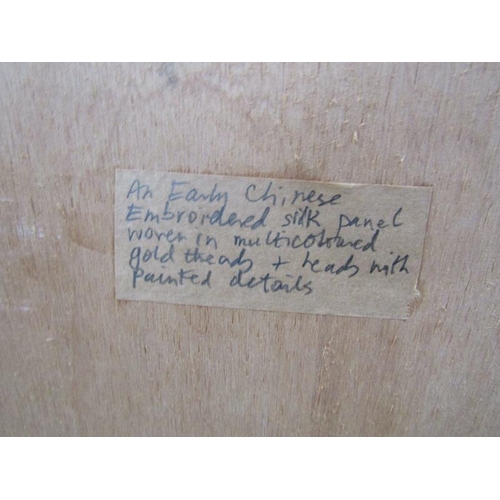 An Early Chinese
Embroidered silk panel
woven in multicoloured
gold theads + heads with
Painted details